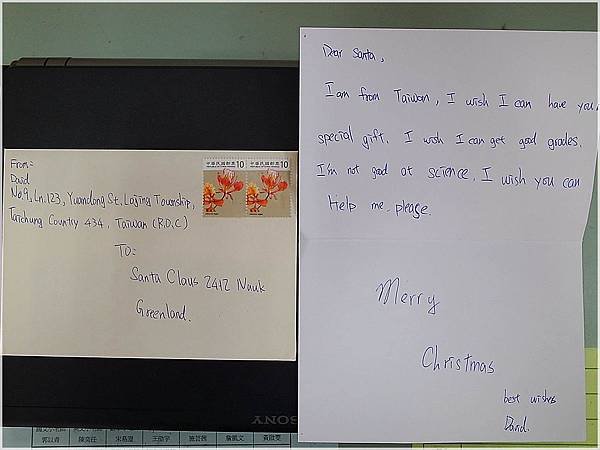 From:
David
No.9, Ln.123, Yuandong St. Lojing Township,
Taichung Country 434, Taiwan (R.O.C)
To:
Santa Claus 2412 Nuuk
Greenland.
中華民國郵票 10
中華民國郵票 10
SONY
Dear Santa,
I am from Taiwan, I wish I can have you
special gift. I wish I can get good grades.
I'm not good at science. I wish you can
Help me. please.
Merry
Christmas
best wishes
David.